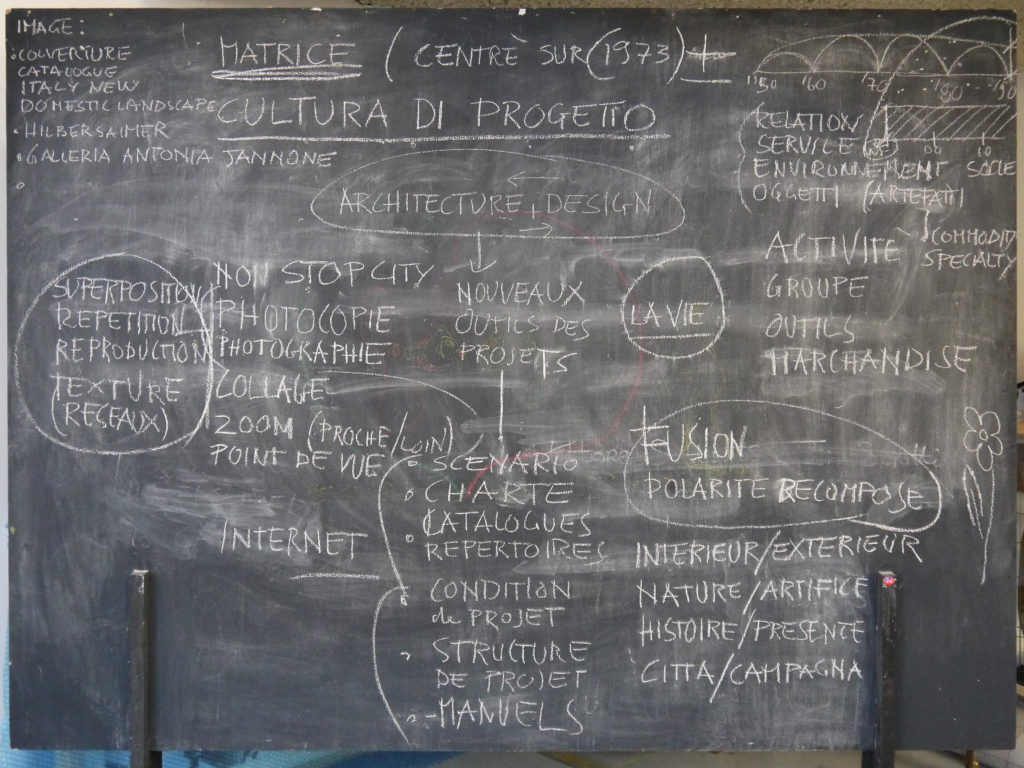 IMAGE:
• COUVERTURE
CATALOGUE
ITALY NEW
DOMESTIC LANDSCAPE
• HILBERSAIMER
• GALLERIA ANTONIA JANNONE
MATRICE (CENTRÈ SUR (1973) +
CULTURA DI PROGETTO
ARCHITECTURE + DESIGN
'50 '60 '70 '80 '90
RELATIONS
SERVICE
ENVIRONNEMENT
OGGETTI (ARTEFATTI)
COMMODITY
SPECIALTY
ACTIVITE
GROUPE
OUTILS
MARCHANDISE
SUPERPOSITION
REPETITION
REPRODUCTION
TEXTURE
(RESEAUX)
NON STOP CITY
PHOTOCOPIE
PHOTOGRAPHIE
COLLAGE
ZOOM (PROCHE/LOIN)
POINT DE VUE
INTERNET
NOUVEAUX
OUTILS DES
PROJETS
• SCENARIO
• CHARTE
• CATALOGUES
REPERTOIRES
• CONDITION
de PROJET
• STRUCTURE
DE PROJET
• MANUELS
LA VIE
FUSION
POLARITE RECOMPOSE
INTERIEUR/EXTERIEUR
NATURE/ARTIFICE
HISTOIRE/PRESENTE
CITTA/CAMPAGNA